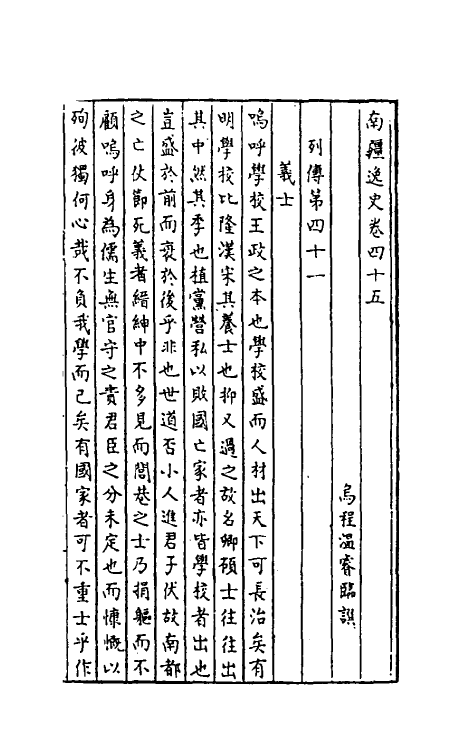 南疆逸史卷四十五
烏程溫睿臨譔
列傳第四十一
義士
嗚呼學校王政之本也學校盛而人材出天下可長治矣有
明學校比隆漢宋其養士也抑又過之故名卿碩士往往出
其中然其季也植黨營私以敗國亡家者亦皆學校者出也
豈盛於前而衰於後乎非也世道否小人進君子伏故南都
之亡仗節死義者縉紳中不多見而閭巷之士乃捐軀而不
顧嗚呼身為儒生無官守之責君臣之分未定也而慷慨以
殉彼獨何心哉不負我學而已矣有國家者可不重士乎作